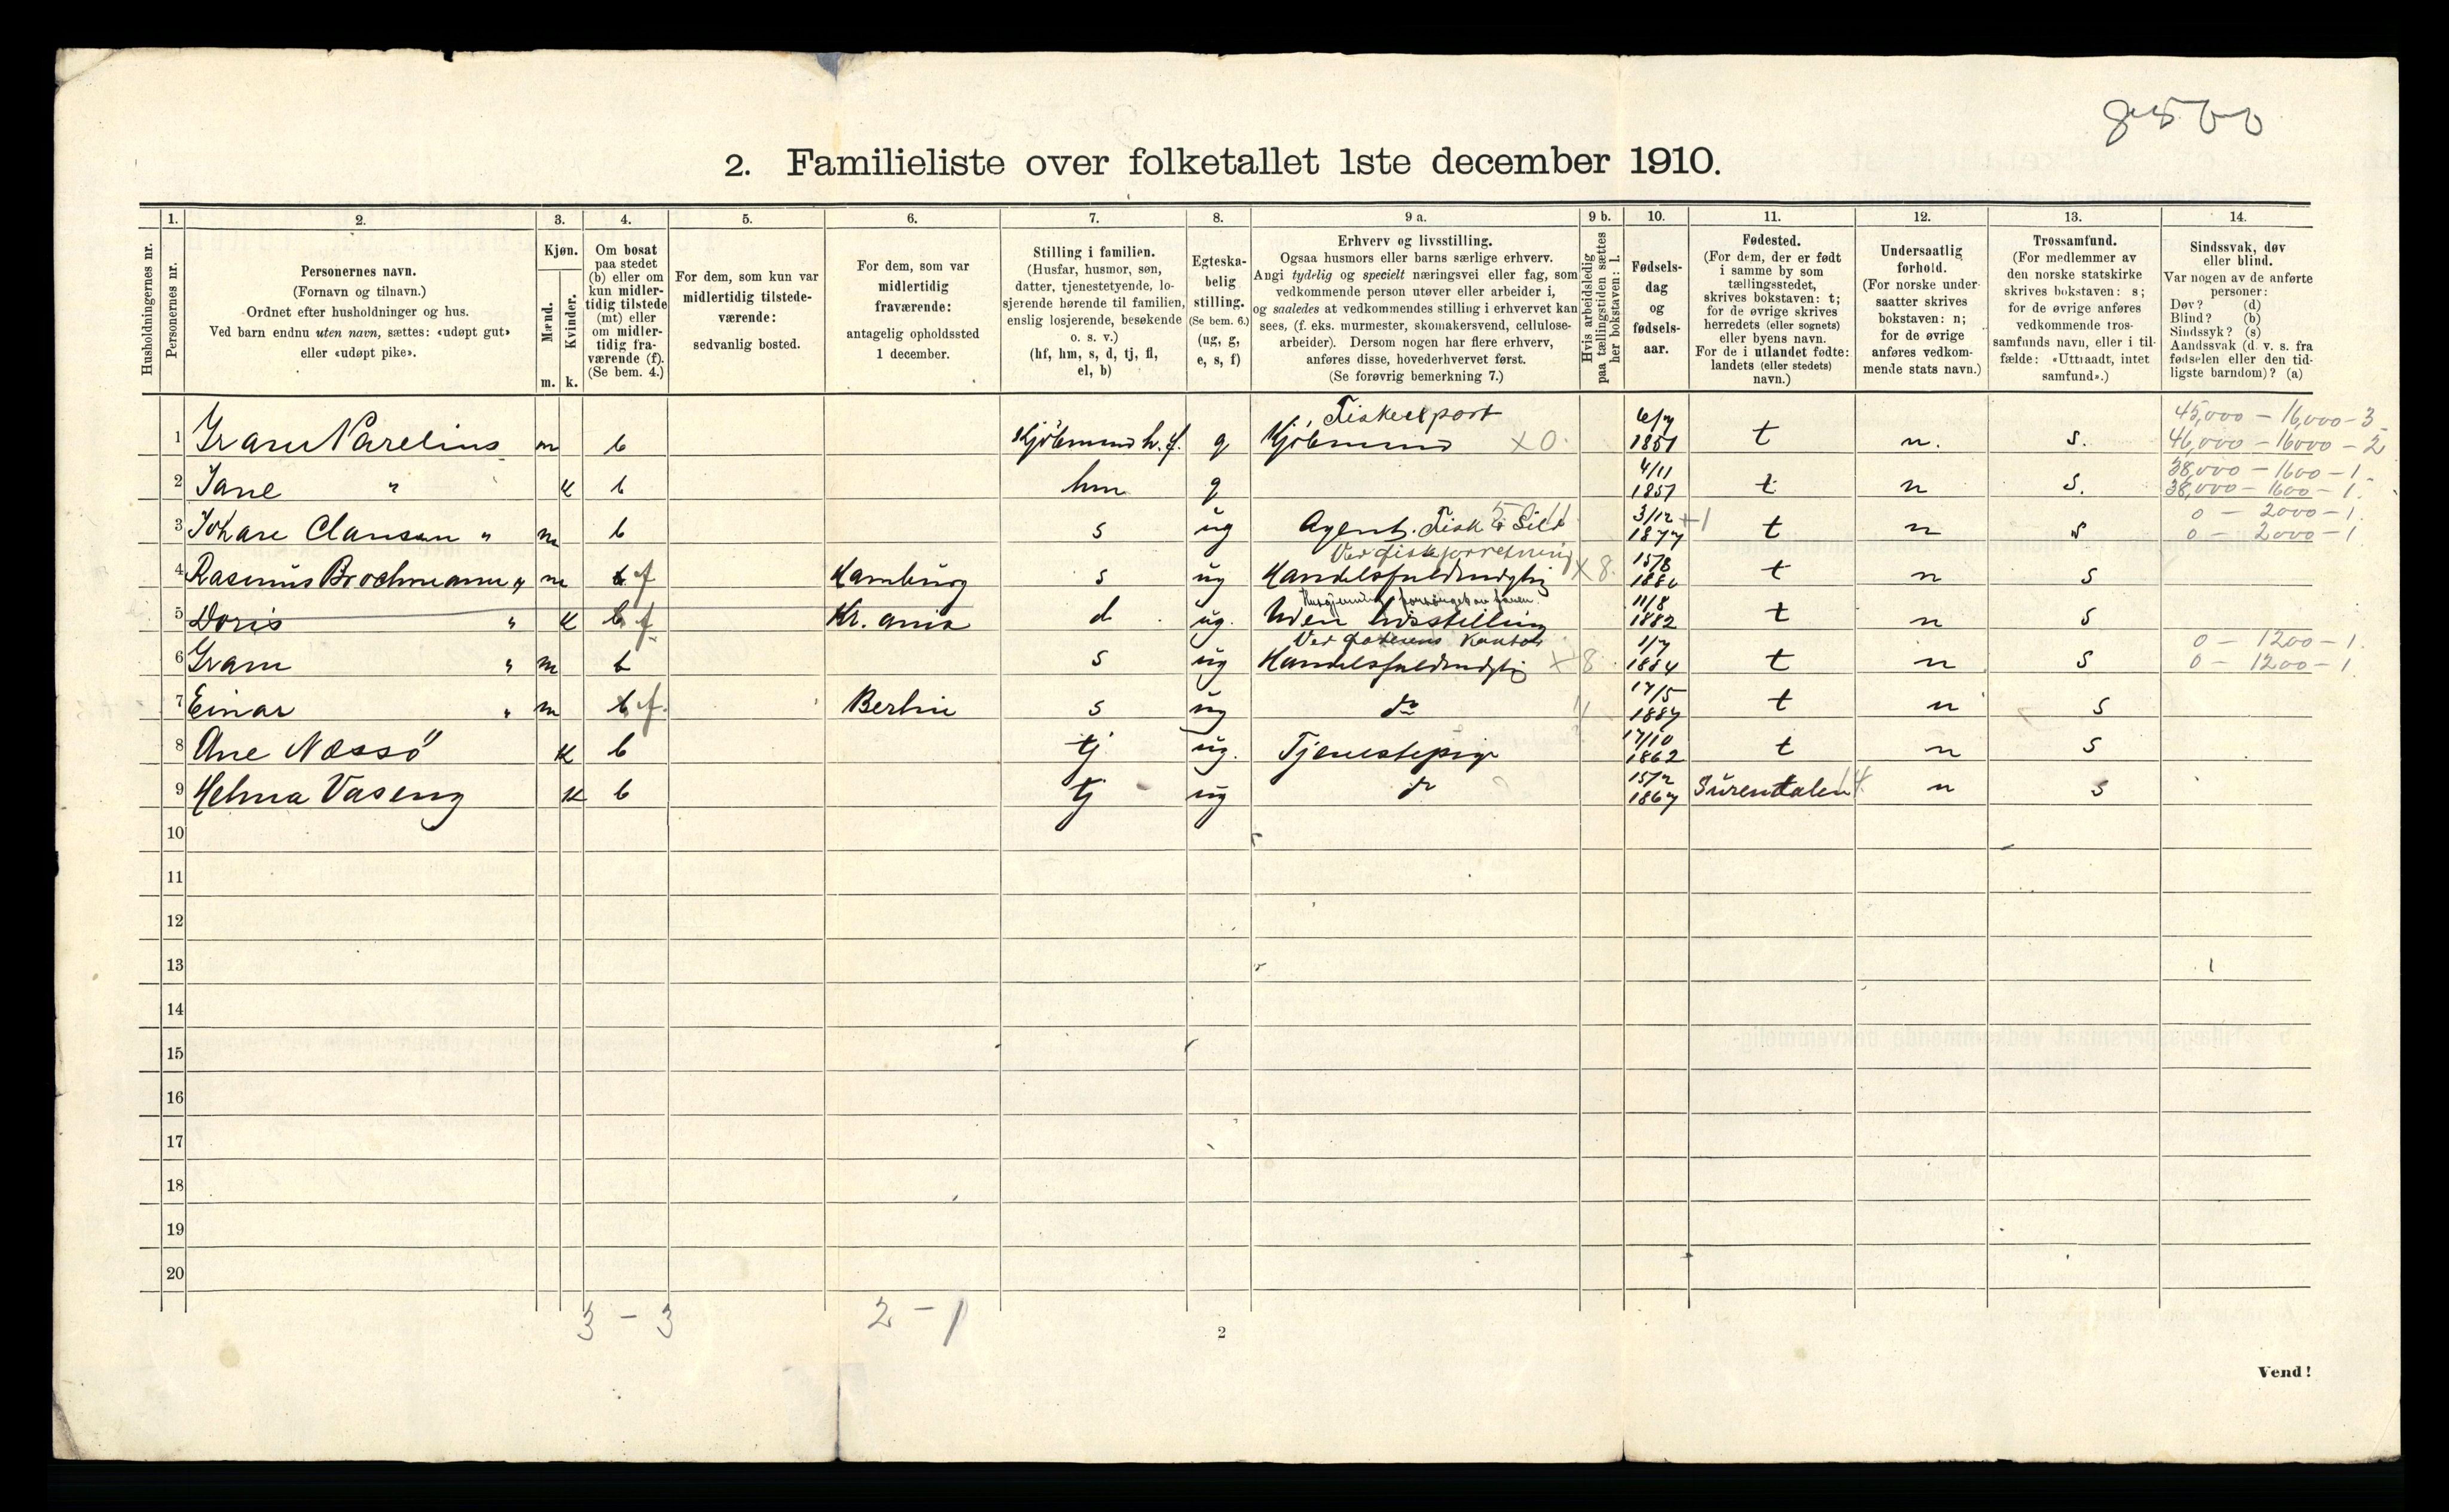 8500
2. Familieliste over folketallet 1ste december 1910.
Husholdningernes nr.
1. Personernes nr.
2. Personernes navn. (Fornavn og tilnavn.) Ordnet efter husholdninger og hus. Ved barn endnu uten navn, sættes: «udøpt gut» eller «udøpt pike».
3. Kjøn. Mænd. m. Kvinder. k.
4. Om bosat paa stedet (b) eller om kun midlertidig tilstede (mt) eller om midlertidig fraværende (f). (Se bem. 4.)
5. For dem, som kun var midlertidig tilstedeværende: sedvanlig bosted.
6. For dem, som var midlertidig fraværende: antagelig opholdssted 1 december.
7. Stilling i familien. (Husfar, husmor, søn, datter, tjenestetyende, losjerende hørende til familien, enslig losjerende, besøkende o. s. v.) (hf, hm, s, d, tj, fl, el, b)
8. Egteskabelig stilling. (Se bem. 6.) (ug, g, e, s, f)
9 a. Erhverv og livsstilling. Ogsaa husmors eller barns særlige erhverv. Angi tydelig og specielt næringsvei eller fag, som vedkommende person utøver eller arbeider i, og saaledes at vedkommendes stilling i erhvervet kan sees, (f. eks. murmester, skomakersvend, cellulosearbeider). Dersom nogen har flere erhverv, anføres disse, hovederhvervet først. (Se forøvrig bemerkning 7.)
9 b. Hvis arbeidsledig paa tællingstiden sættes her bokstaven: l.
10. Fødselsdag og fødselsaar.
11. Fødested. (For dem, der er født i samme by som tællingsstedet, skrives bokstaven: t; for de øvrige skrives herredets (eller sognets) eller byens navn. For de i utlandet fødte: landets (eller stedets) navn.)
12. Undersaatlig forhold. (For norske undersaatter skrives bokstaven: n; for de øvrige anføres vedkommende stats navn.)
13. Trossamfund. (For medlemmer av den norske statskirke skrives bokstaven: s; for de øvrige anføres vedkommende trossamfunds navn, eller i tilfælde: «Uttraadt, intet samfund».)
14. Sindssvak, døv eller blind. Var nogen av de anførte personer: Døv? (d) Blind? (b) Sindssyk? (s) Aandssvak (d. v. s. fra fødselen eller den tidligste barndom)? (a)
1 Gram Parelius m b Kjöbmand h.f. g Fiskeexport Kjöbmand x0 6/7 1851 t n. s. 45,000 – 16,000 – 3 46,000 – 16000 – 2
2 Jane " k b hm g 4/11 1851 t n s. 38,000 – 1600 – 1 38,000 – 1600 – 1.
3 Johan Clausen " m b s ug Agent. Fisk & Sild 3/12 1877 +1 t n s 0 – 2000 – 1. 0 – 2000 – 1
4 Rasmus Brochmann " m b f Hamburg s ug Ved fiskforretning Handelsfuldmægtig x 8. 15/8 1880 t n s
5 Doris " k b f Kr. ania d ug. Uden livsstilling 11/8 1882 t n s
6 Gram " m b s ug Ved faderens Kontor Handelsfuldmægtig x 8 1/7 1884 t n s 0 – 1200 – 1. 0 – 1200 – 1
7 Einar " m b f. Berlin s ug do 17/5 1887 t n s
8 Ane Næssö k b tj ug. Tjenestepige 17/10 1862 t n s
9 Helma Vaseng k b tj ug do 15/2 1867 Surendalen n s
10
11
12
13
14
15
16
17
18
19
20
3 – 3 2 – 1
2
Vend!